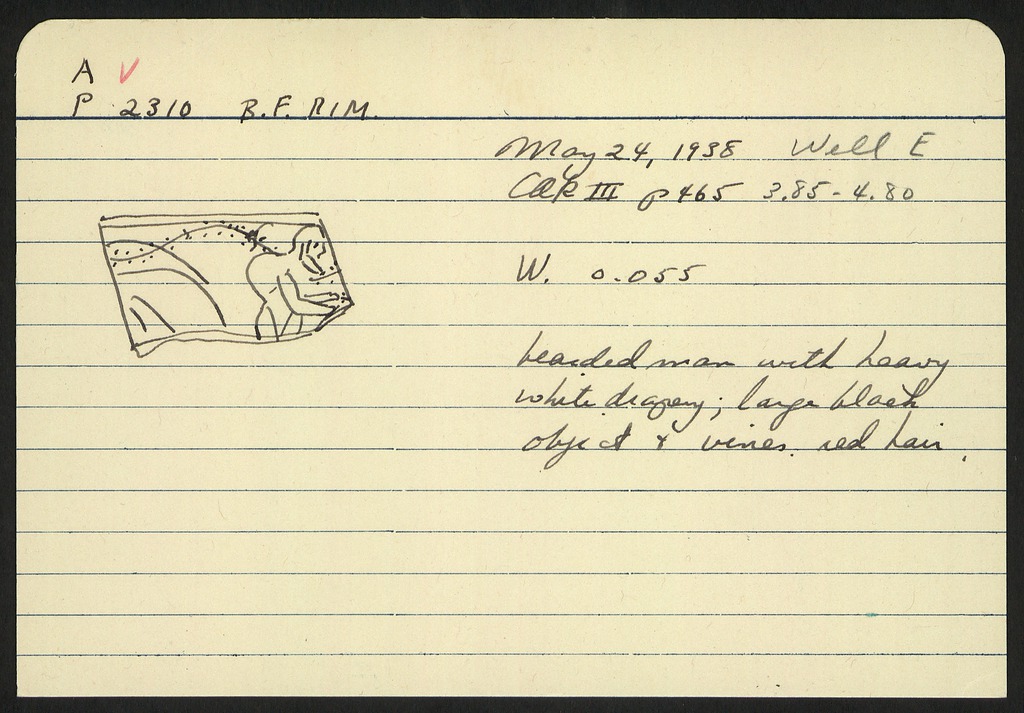 A V
P 2310 B.F. RIM.
May 24, 1938 Well E
III p 465 3.85-4.80
W. 0.055
bearded man with heavy
white drapery; large black
object & vines. red hair.